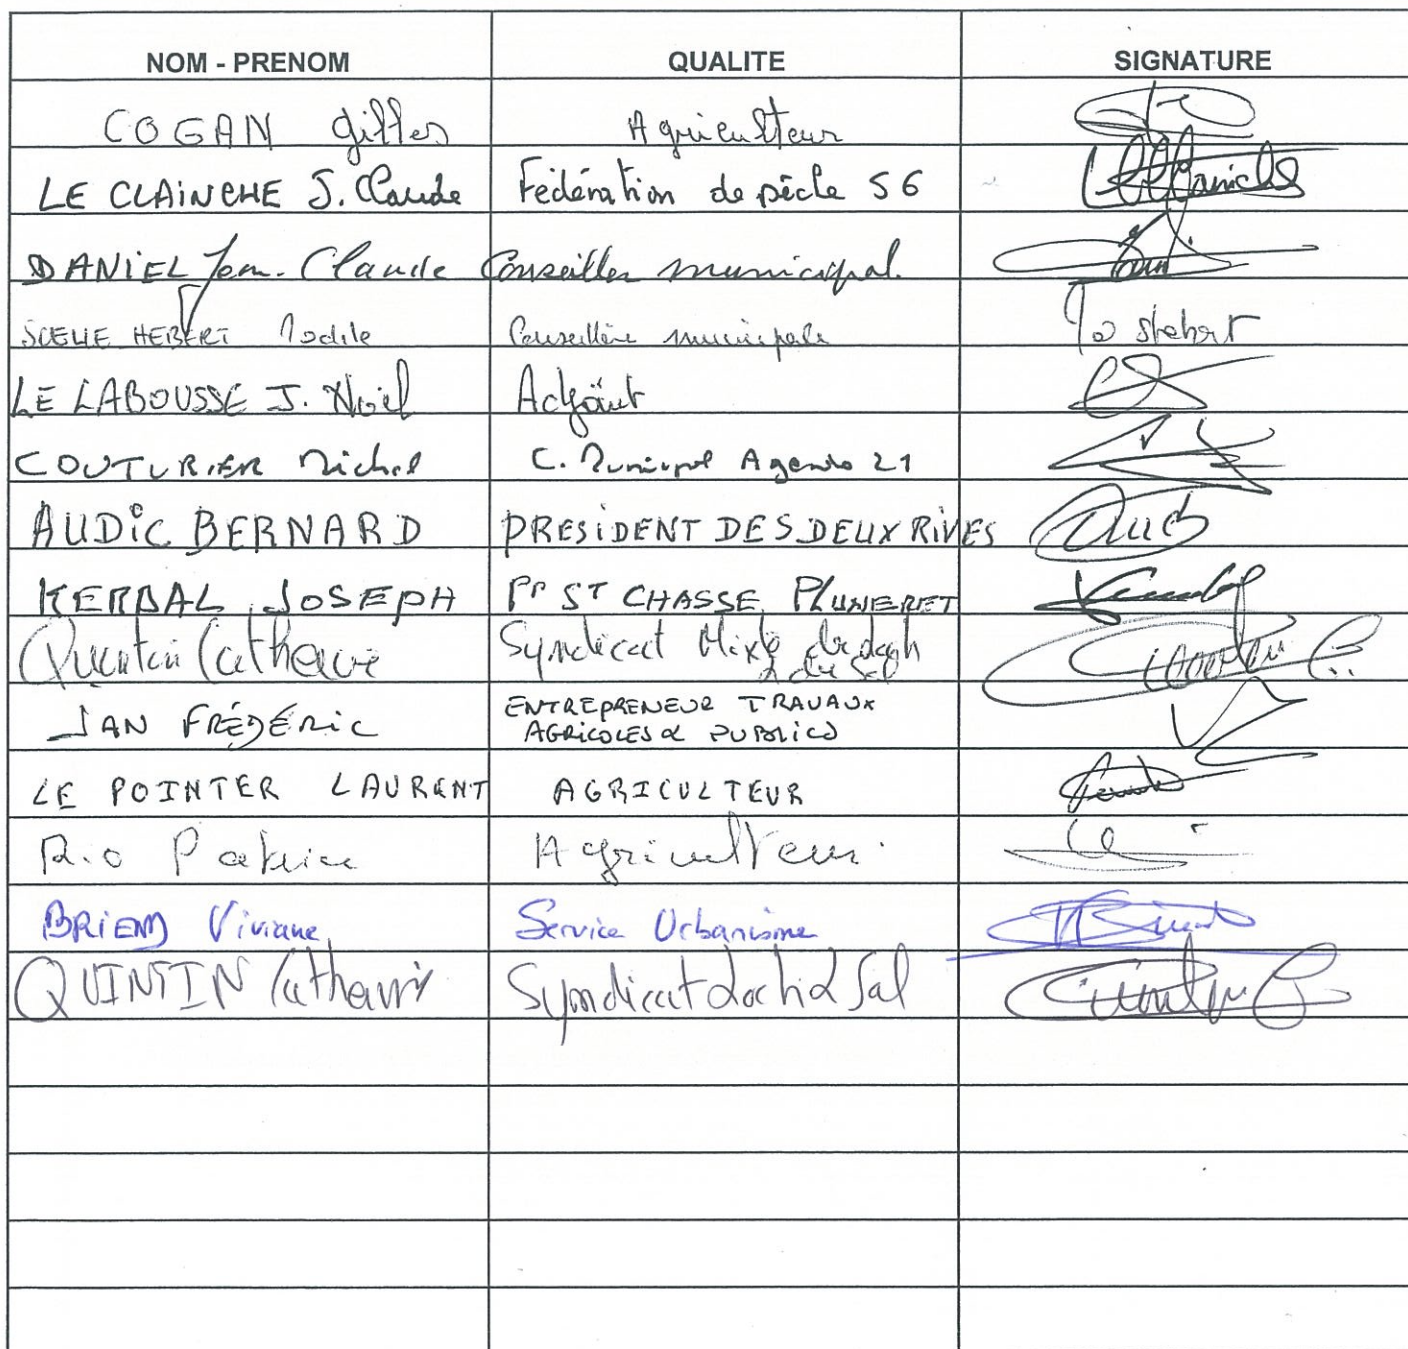 NOM - PRENOM QUALITE SIGNATURE
COGAN Gilles Agriculteur
LE CLAINCHE J. Claude Fédération de pêche 56
DANIEL Jean-Claude Conseiller municipal
HEBERT Conseillère municipale
LE LABOUSSE J. Noël Adjoint
COUTURIER Michel C. Municipal Agenda 21
AUDIC BERNARD PRESIDENT DES DEUX RIVES
KERBAL JOSEPH Pr ST CHASSE PLUNERET
Quintin Catherine Syndicat Mixte du Loch
& du Sal
JAN FRÉDÉRIC ENTREPRENEUR TRAVAUX
AGRICOLES & PUBLICS
LE POINTER LAURENT AGRICULTEUR
Rio Patrice Agriculteur
BRIEND Viviane Service Urbanisme
QUINTIN Catherine Syndicat Loch & Sal